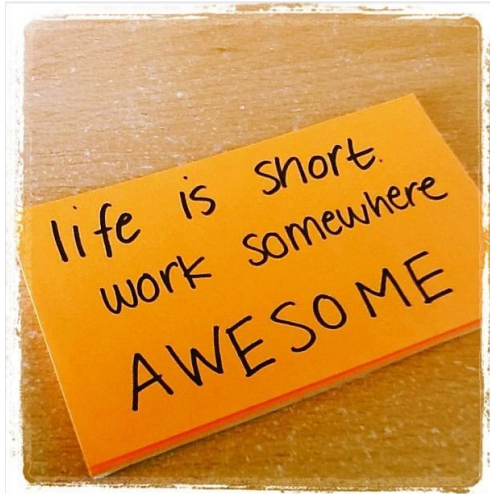 life is short.
work somewhere
AWESOME